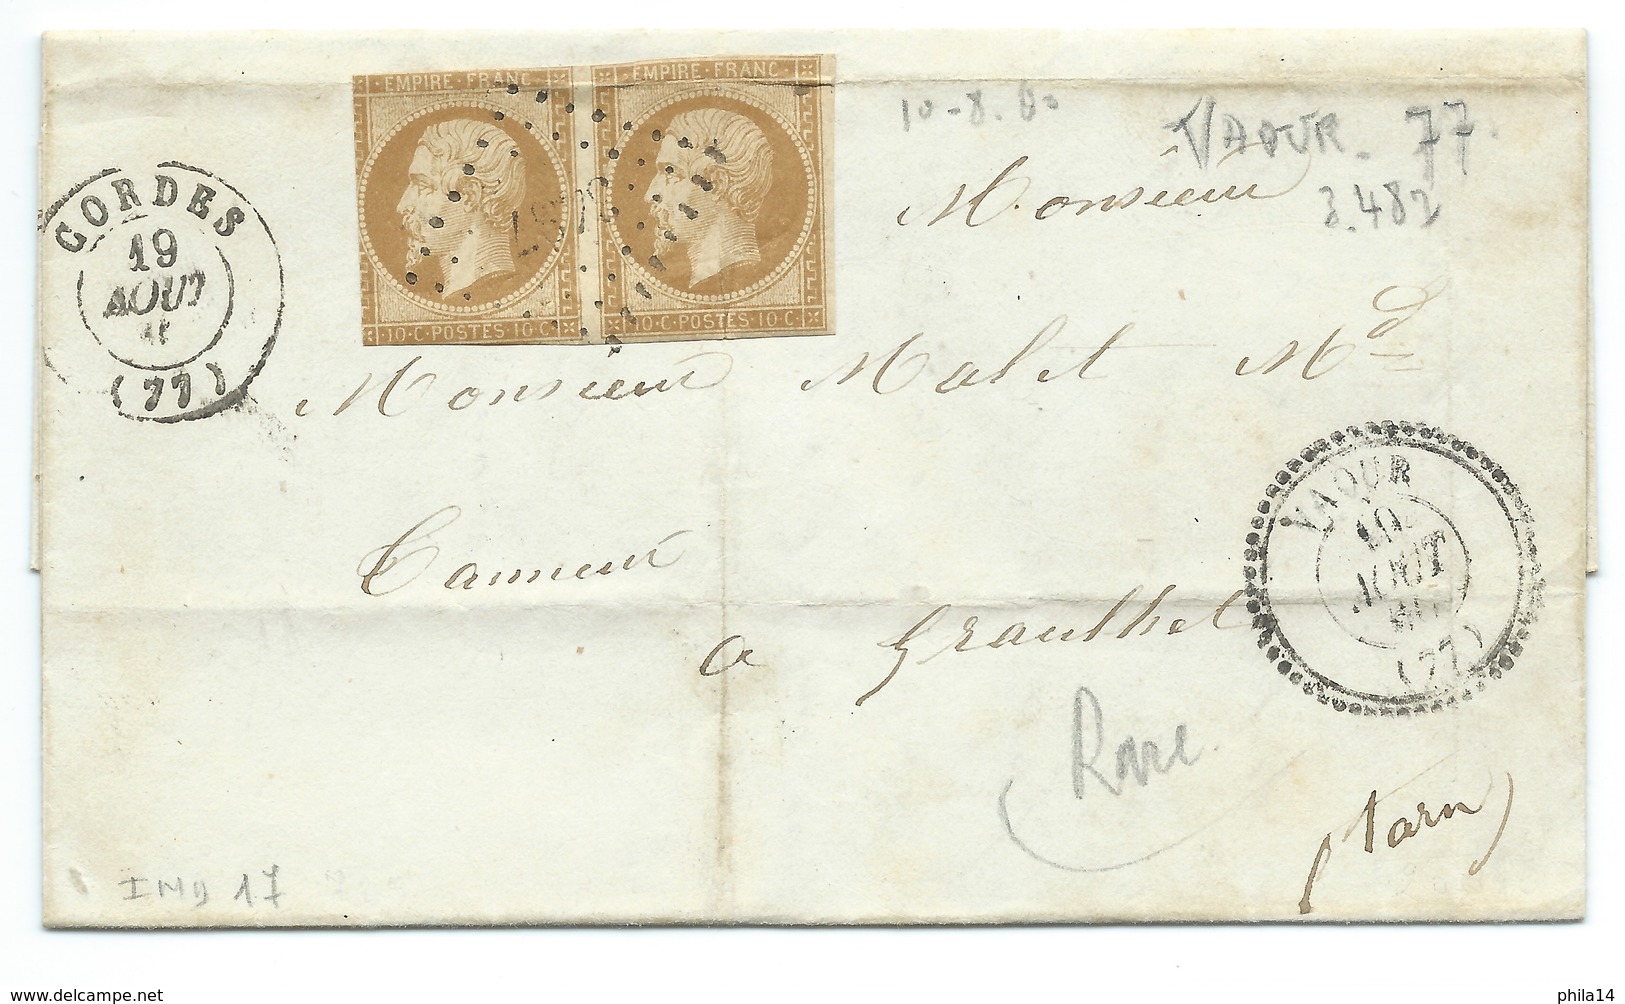 EMPIRE · FRANC · EMPIRE · FRANC ·
10·C·POSTES·10·C· 10·C·POSTES·10·C·
3482
CORDES
19
AOUT
(77)
10-8.60
VAOUR _ 77.
3.482
Monsieur
Monsieur Malet Md
Tanneur
a Graulhet
VAOUR
19
AOUT
(77)
Rare
(tarn)
IND 17
www.delcampe.net
phila14